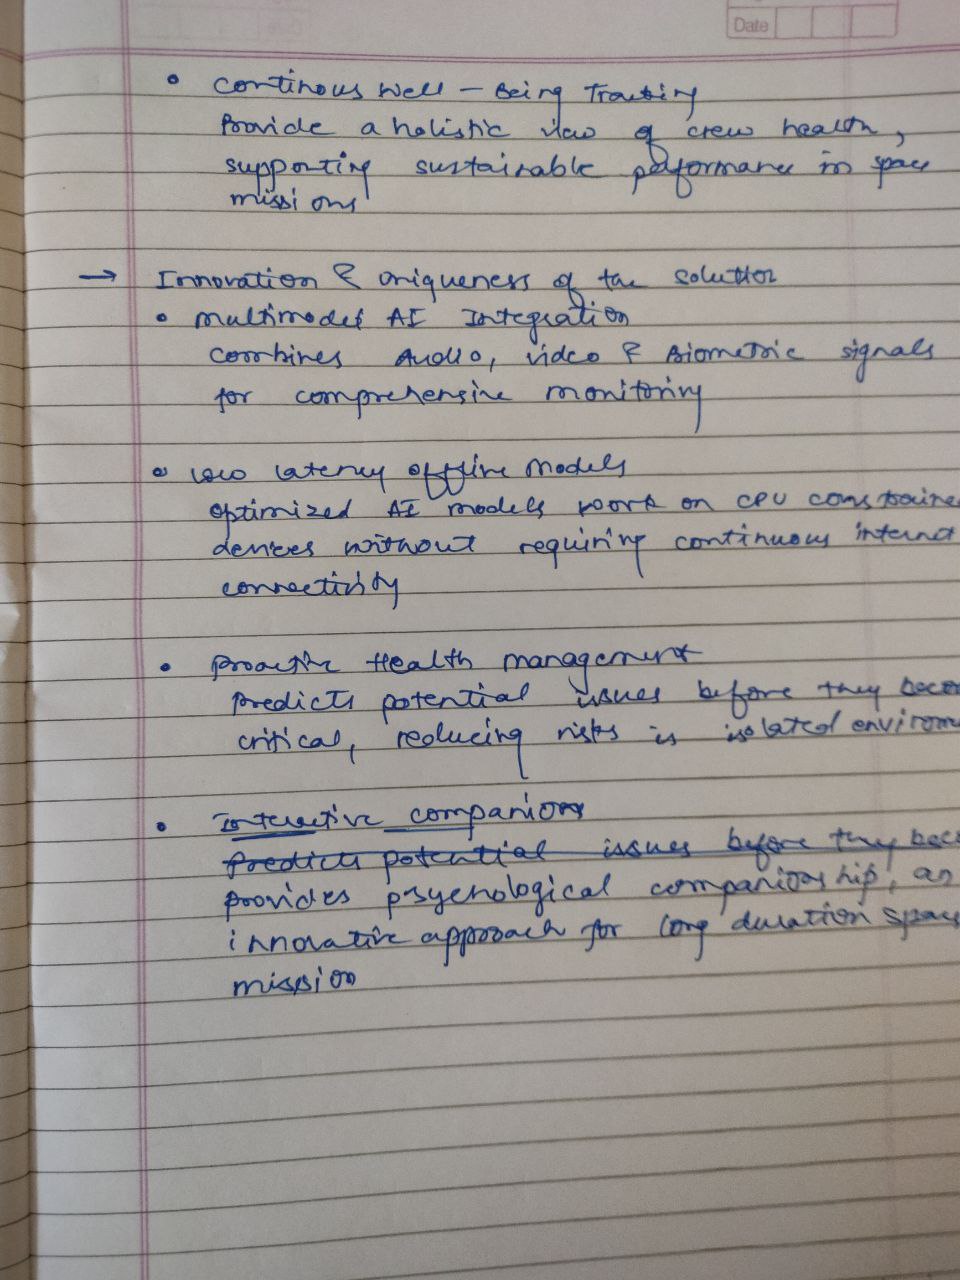 Date
• Continous Well - Being Tracking
Provide a holistic view of crew health,
supporting sustainable performance in space
missions
→ Innovation & uniqueness of the solution
• Multimodel AI Integration
combines Audio, video & Biometric signals
for comprehensive monitoring
• Low latency offline Models
optimized AI models work on CPU constraine
devices without requiring continuous internet
connectivity
• Proactive Health management
Predicts potential issues before they becom
critical, reducing risks is isolated environm
• Interactive companions
Predicts potential issues before they beco
provides psychological companionship, an
innovative approach for long duration space
mission